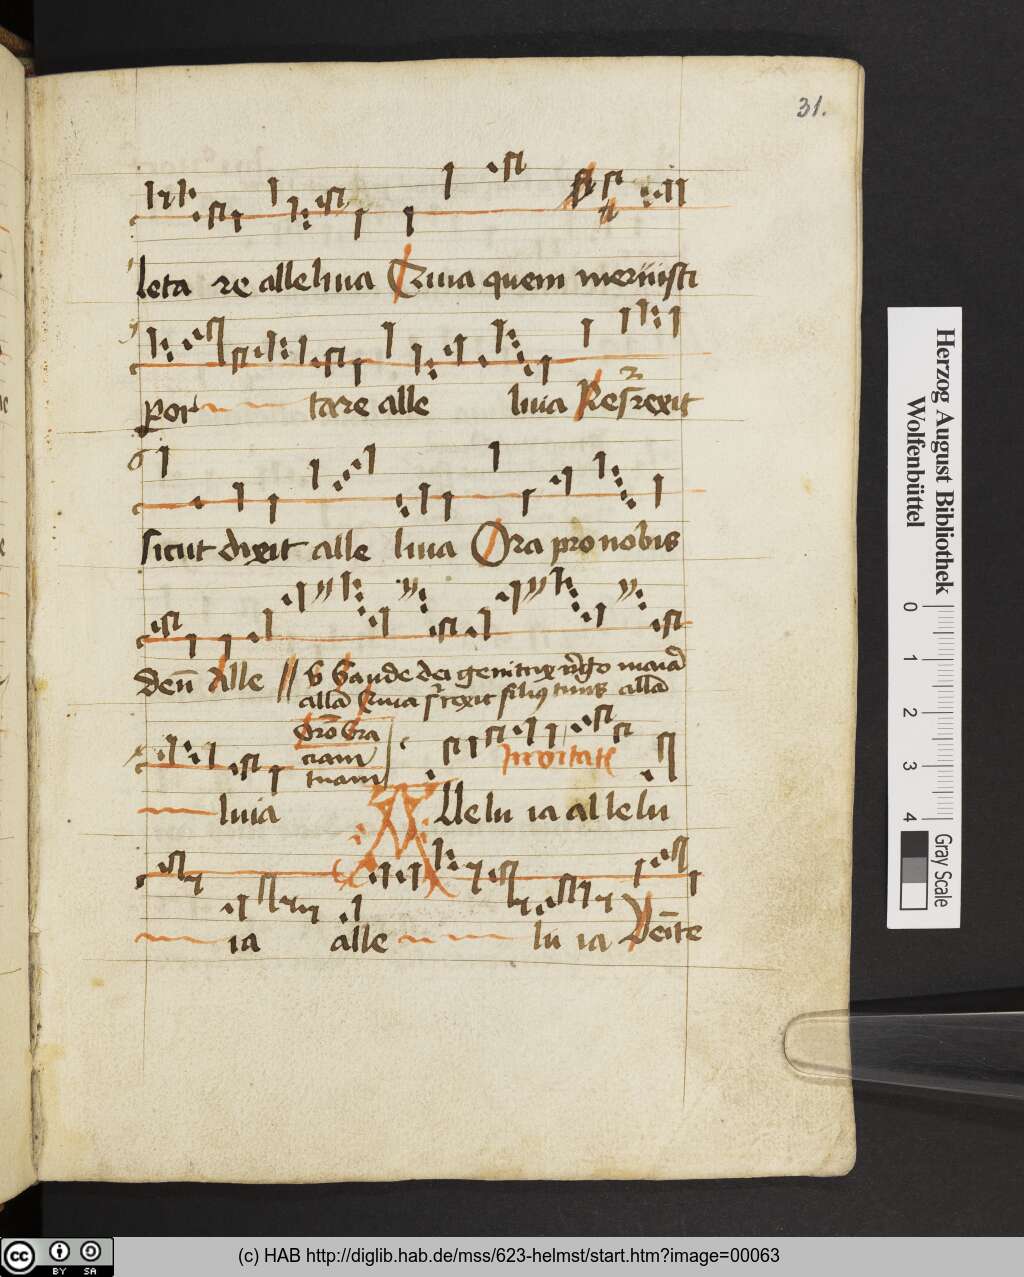 31.
leta re alleluia Quia quem meruisti
por tare alle luia Resrexit
sicut dixit alle luia Ora pro nobis
deū Alle v Gaude dei genitrix v̄go maria
allā Quia s̄rexit filiꝯ tuus allā
Orō Gra
ciam Invitat
tuam
luia Allelu ia allelu
ia alle lu ia Veīte
Herzog August Bibliothek
Wolfenbüttel
0 1 2 3 4 Gray Scale
(c) HAB http://diglib.hab.de/mss/623-helmst/start.htm?image=00063
cc BY SA